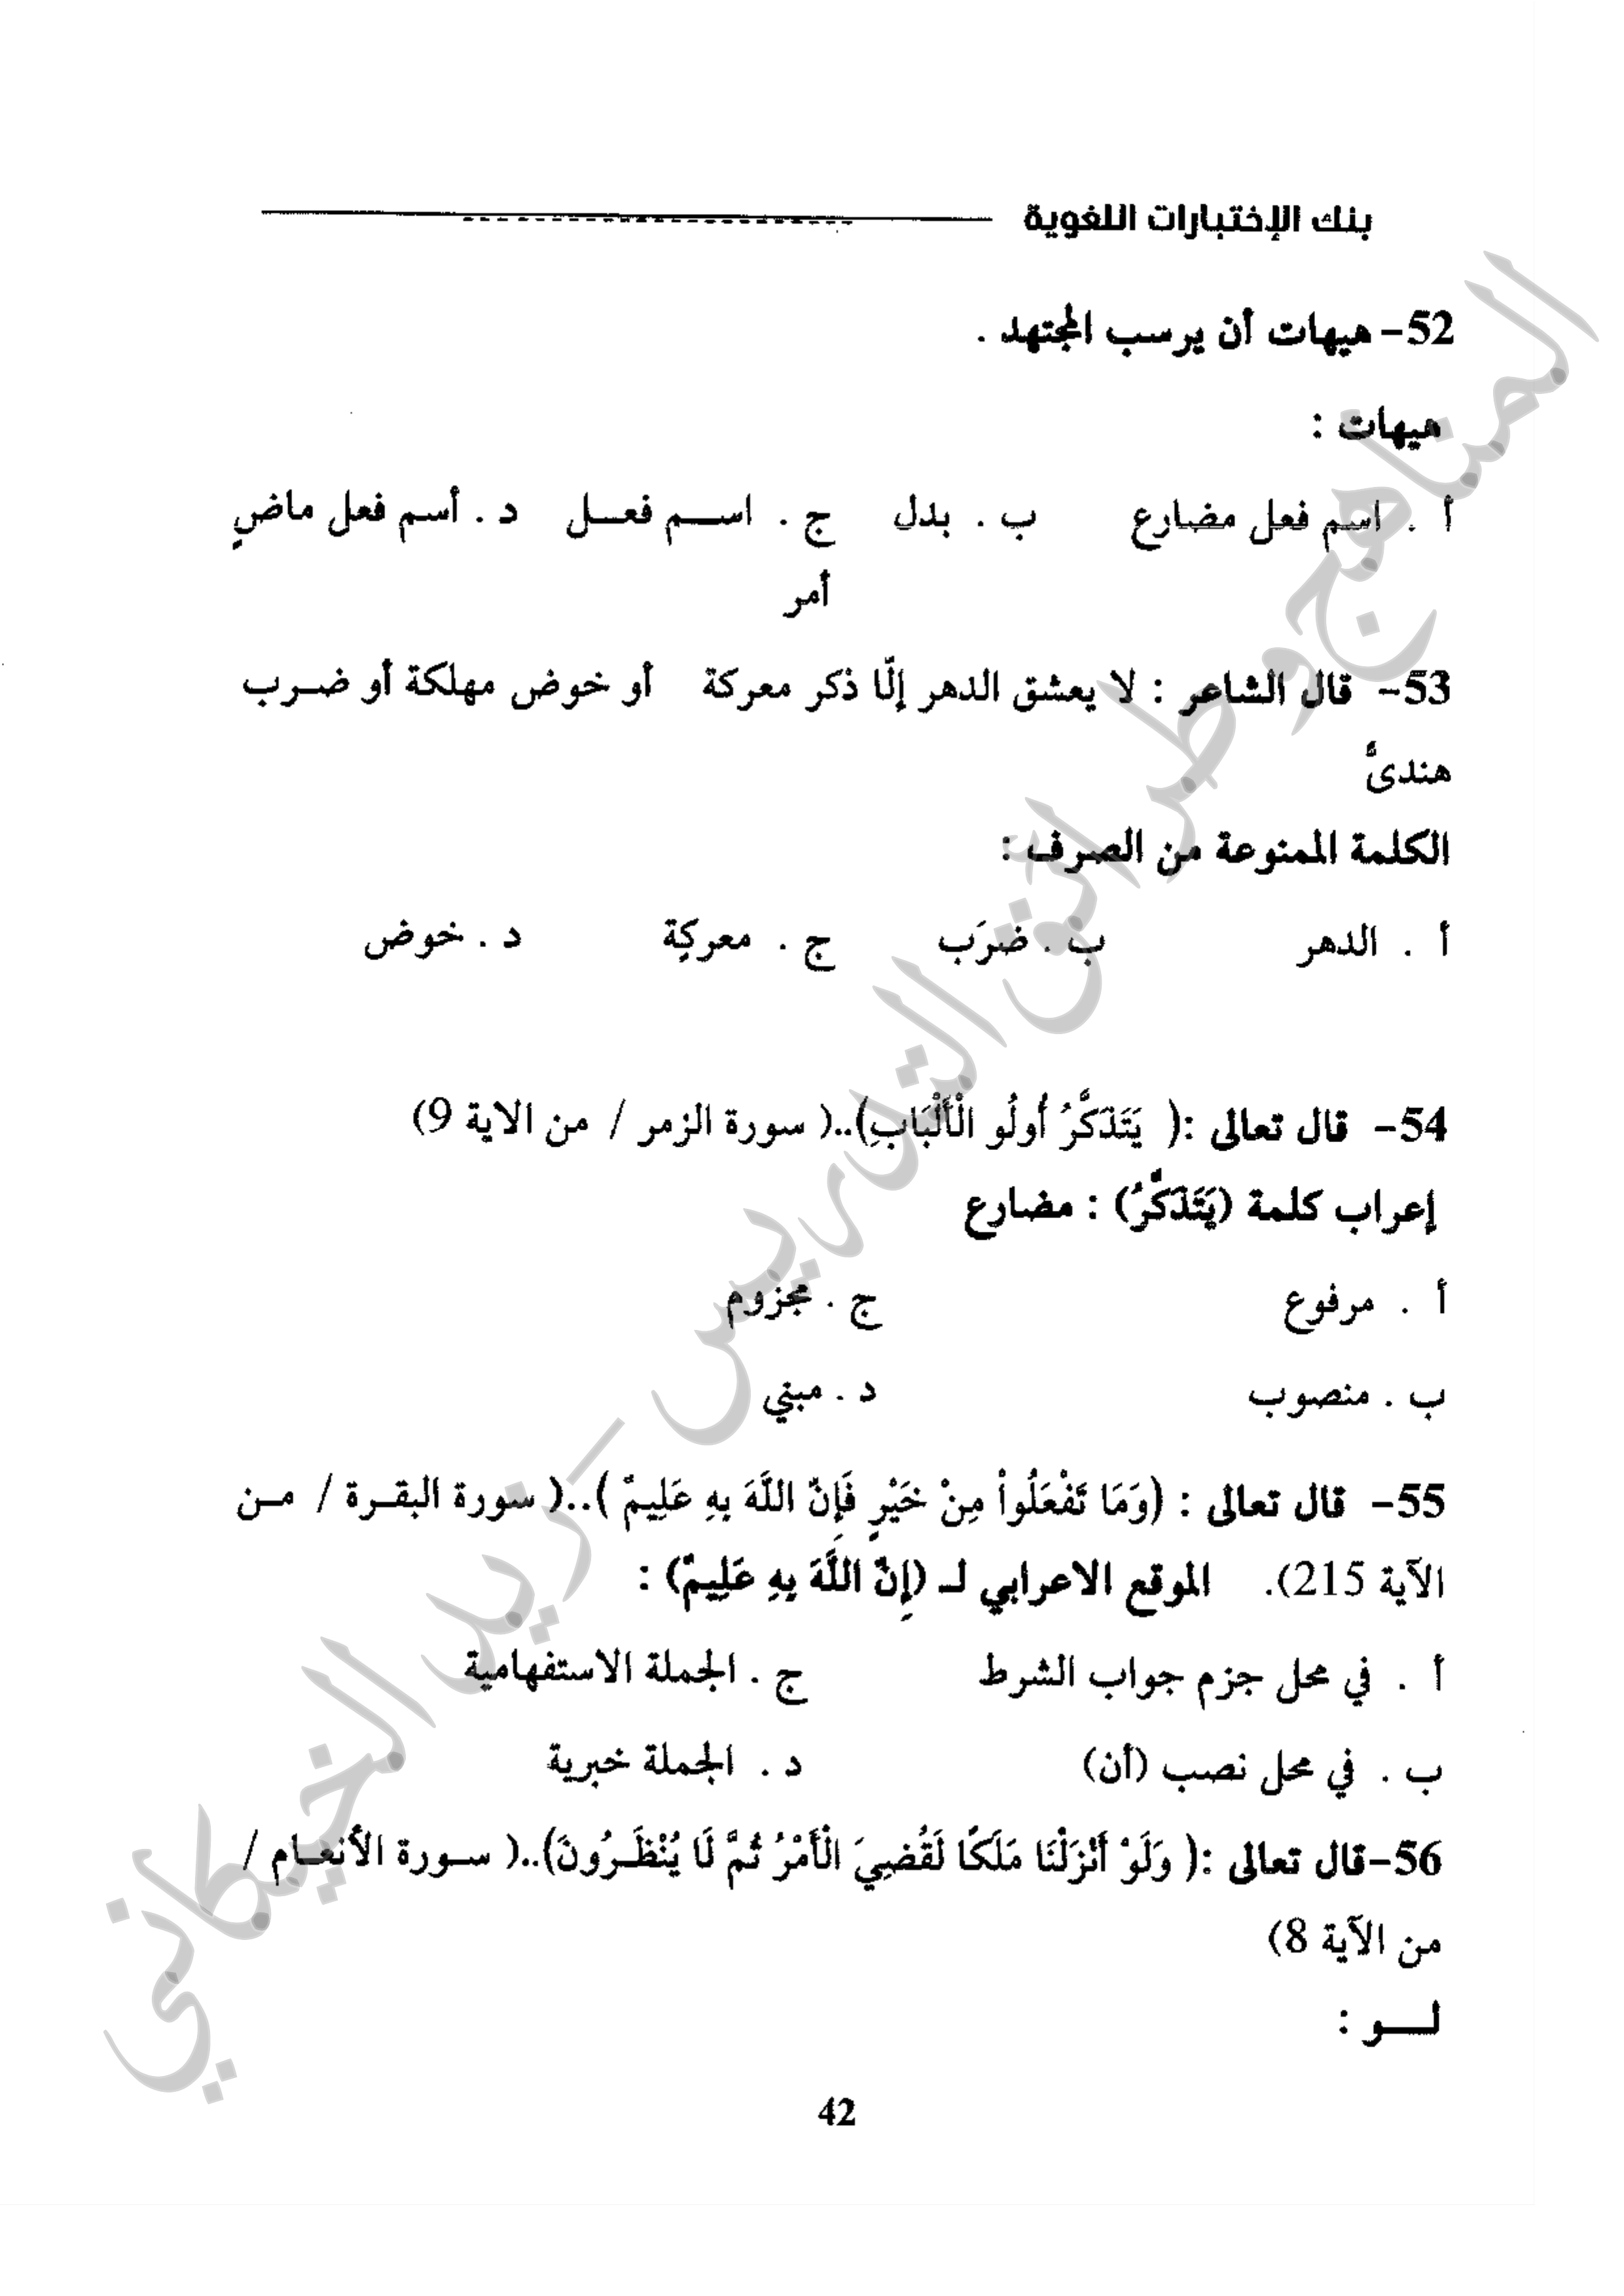 بنك الإختبارات اللغوية
52- هيهات أن يرسب المجتهد .
هيهات :
أ . اسم فعل مضارع ب . بدل ج . اســم فعــل د . أسم فعل ماضٍ
أمر
53- قال الشاعر : لا يعشق الدهر إلّا ذكر معركة أو خوض مهلكة أو ضـرب
هندىٌّ
الكلمة الممنوعة من الصرف :
أ . الدهر ب . ضرَب ج . معركةٍ د . خوض
54- قال تعالى :( يَتَذَكَّرُ أُولُو الْأَلْبَابِ)..( سورة الزمر / من الاية 9)
إعراب كلمة (يَتَذَكَّرُ) : مضارع
أ . مرفوع ج . مجزوم
ب . منصوب د . مبني
55- قال تعالى : (وَمَا تَفْعَلُواْ مِنْ خَيْرٍ فَإِنَّ اللَّهَ بِهِ عَلِيمٌ )..( سورة البقـرة / مـن
الآية 215). الموقع الاعرابي لـ (إِنَّ اللَّهَ بِهِ عَلِيمٌ) :
أ . في محل جزم جواب الشرط ج . الجملة الاستفهامية
ب . في محل نصب (أن) د . الجملة خبرية
56-قال تعالى :( وَلَوْ أَنْزَلْنَا مَلَكًا لَقُضِيَ الْأَمْرُ ثُمَّ لَا يُنْظَـرُونَ)..( سـورة الأنعـام /
من الآية 8)
لــــو :
42
المناهج وطرائق التدريس - زيد الخيكاني